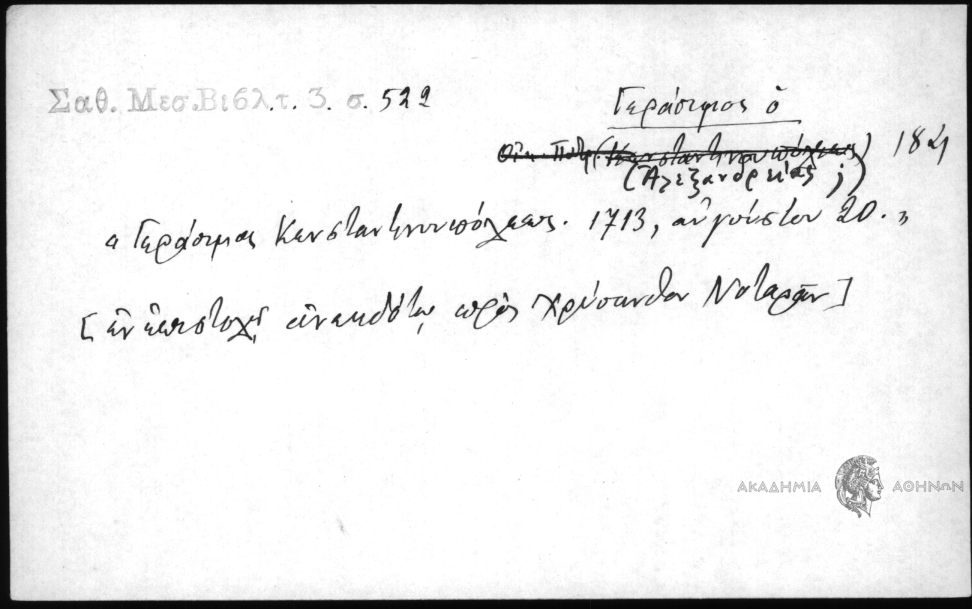 Σαθ. Μεσ. Βιβλ. τ. 3. σ. 522
Γεράσιμος ὁ
Οἰκ. Πατρ. (Κωνσταντινουπόλεως) 18
(Ἀλεξανδρείας ;)
« Γεράσιμος Κωνσταντινουπόλεως. 1713, αὐγούστου 20. »
[ἐν ἐπιστολῇ ἀνεκδότῳ πρὸς Χρύσανθον Νοταρᾶν]
ΑΚΑΔΗΜΙΑ ΑΘΗΝΩΝ